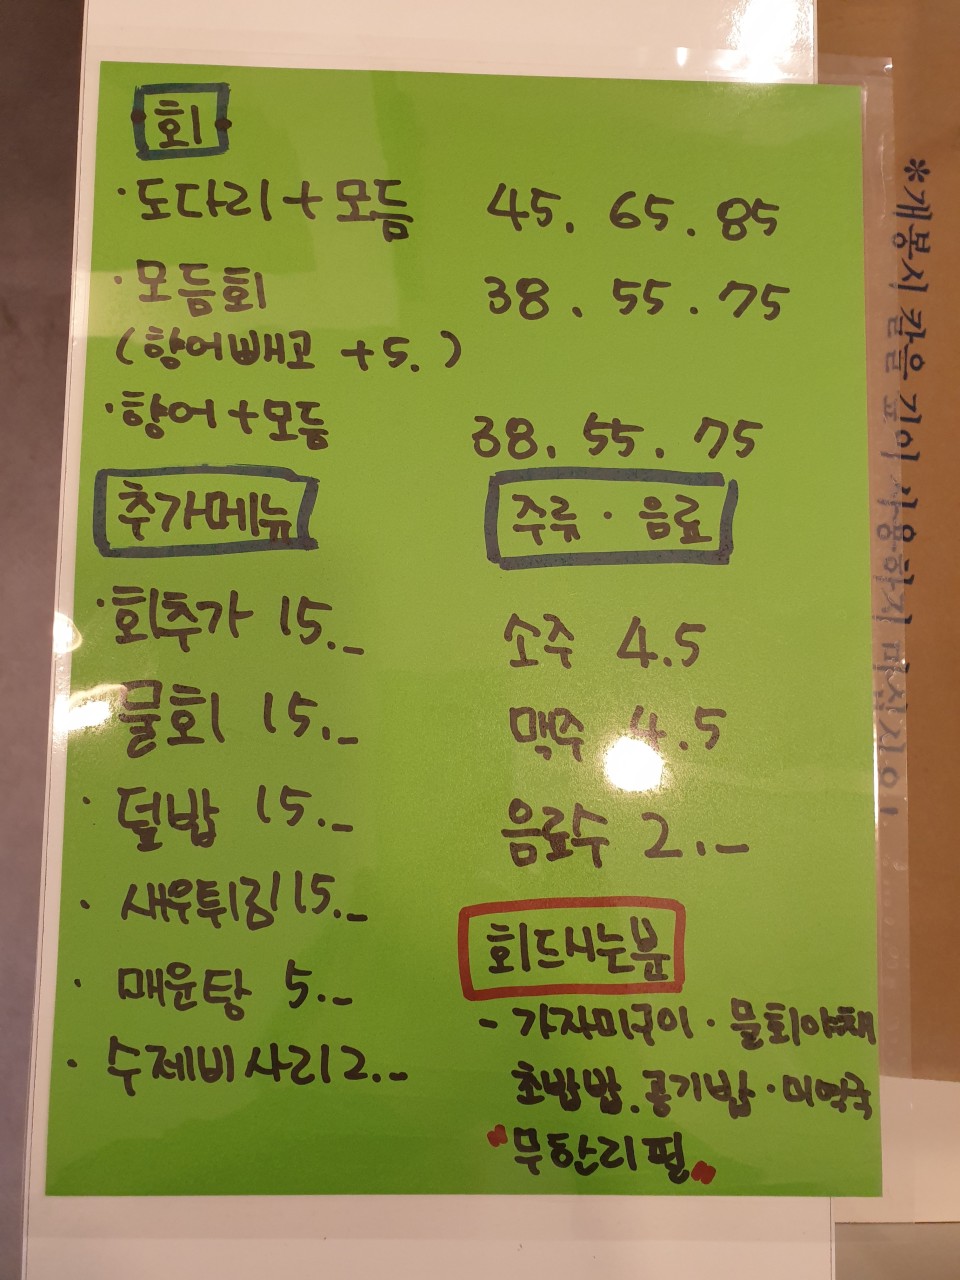 회
· 도다리+모듬 45. 65. 85
· 모듬회 38. 55. 75
(향어빼고 +5.)
· 향어+모듬 38. 55. 75
추가메뉴
· 회추가 15.–
물회 15.–
· 덜밥 15.–
· 새우튀김 15.–
· 매운탕 5.–
· 수제비사리 2.–
주류 · 음료
소주 4.5
맥주 4.5
음료수 2.–
회드시는분
- 가자미구이 · 물회야채
초밥밥. 공기밥 · 미역국
"무한리필"
*개봉시 칼을 깊이 사용하지 마십시오!